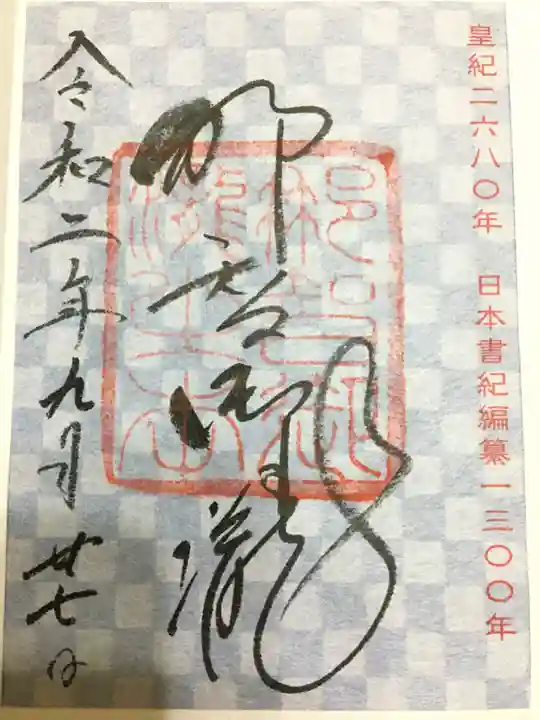 皇紀二六八〇年 日本書紀編纂一三〇〇年
那智御瀧
令和二年九月廿七日